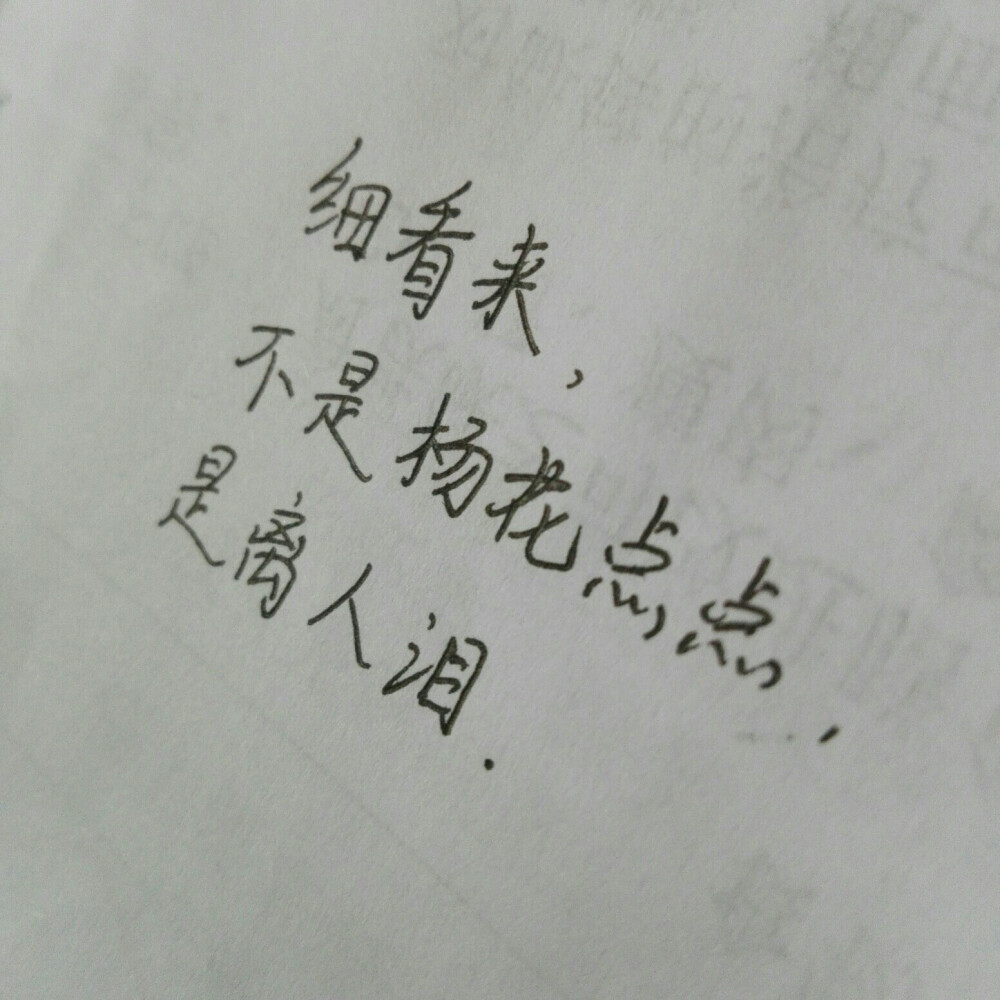 细看来，
不是杨花点点，
是离人泪.